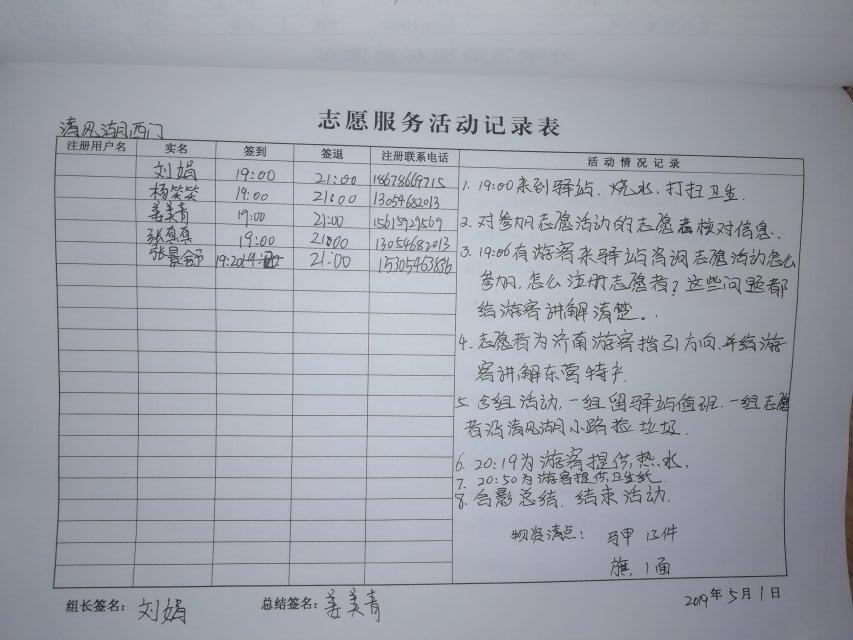 志愿服务活动记录表
清风湖西门
注册用户名 实名 签到 签退 注册联系电话 活动情况记录
刘娟 19:00 21:00 18678669715
杨笑笑 19:00 21:00 13054682013
姜美青 19:00 21:00 15615929569
张真真 19:00 21:00 13054682013
张景会 19:20 21:00 15305463856
1. 19:00来到驿站.烧水.打扫卫生.
2. 对参加志愿活动的志愿者核对信息.
3. 19:06有游客来驿站咨询志愿活动怎么
参加.怎么注册志愿者?这些问题都
给游客讲解清楚。.
4. 志愿者为济南游客指引方向.并给游
客讲解东营特产.
5. 分组活动,一组留驿站值班.一组志愿
者沿清风湖小路捡垃圾.
6. 20:19为游客提供热水.
7. 20:50为游客提供卫生纸.
8. 合影总结.结束活动.
物资清点: 马甲 13件
旗,1面
组长签名: 刘娟 总结签名: 姜美青 2019年5月1日